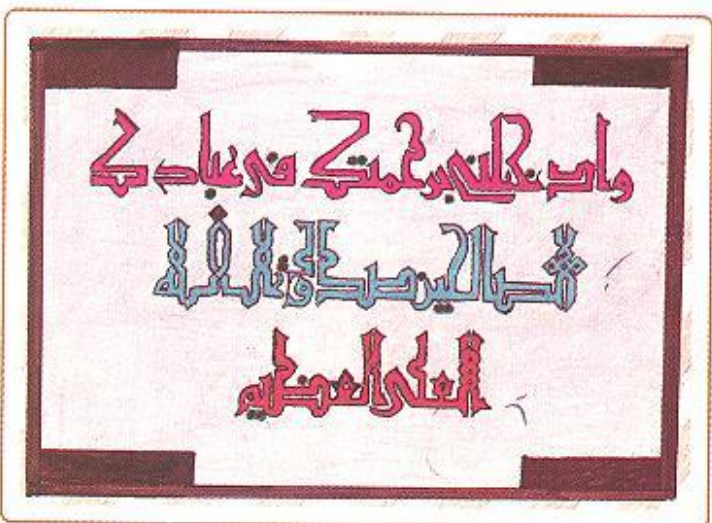 وادخلني برحمتك في عبادك
الصالحين صدق الله
العلى العظيم